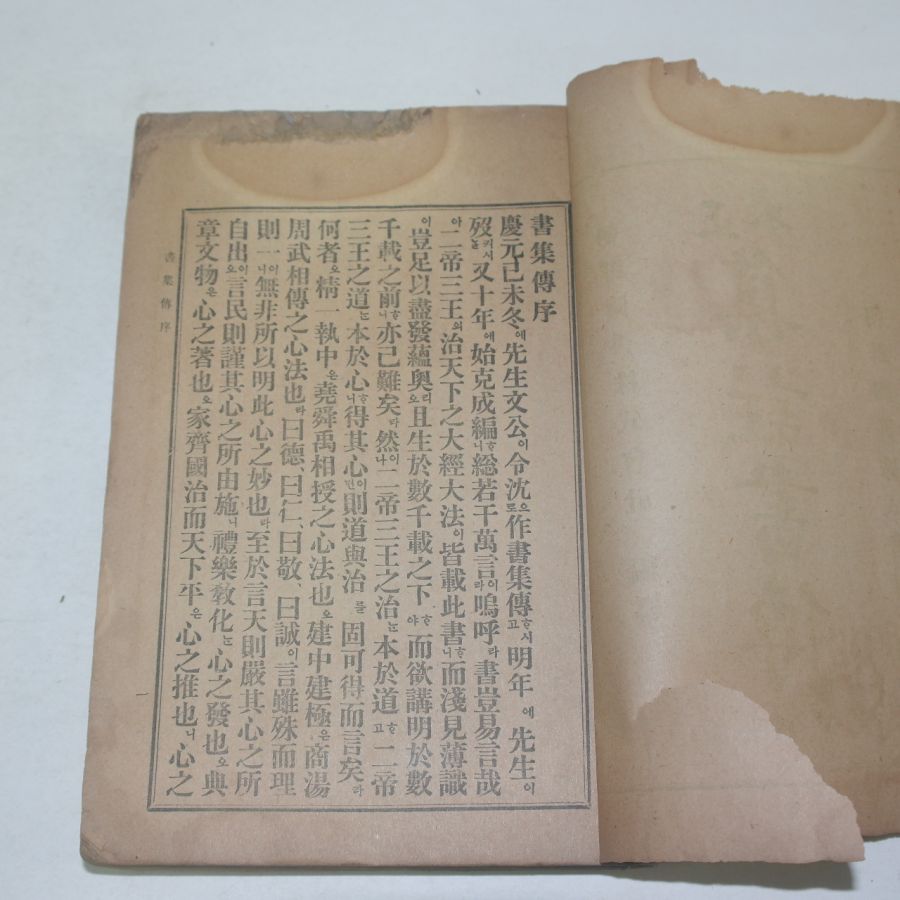 書集傳序
慶元己未冬에先生文公이令沈으로作書集傳ᄒᆞ시고明年에先生이
歿커시늘又十年에始克成編ᄒᆞ니總若干萬言이라嗚呼라書豈易言哉
아二帝三王의治天下之大經大法이皆載此書ᄒᆞ니而淺見薄識
이豈足以盡發蘊奧리오且生於數千載之下ᄒᆞ야而欲講明於數
千載之前ᄒᆞ니亦已難矣라然이나二帝三王之治는本於道ᄒᆞ고二帝
三王之道는本於心ᄒᆞ니得其心이면則道與治를固可得而言矣라
何者오精一執中은堯舜禹相授之心法也오建中建極은商湯
周武相傳之心法也라曰德、曰仁、曰敬、曰誠이言雖殊而理
則一이니無非所以明此心之妙也라至於言天則嚴其心之所
自出이오言民則謹其心之所由施니禮樂敎化는心之發也오典
章文物은心之著也오家齊國治而天下平은心之推也니心之
書集傳序
一